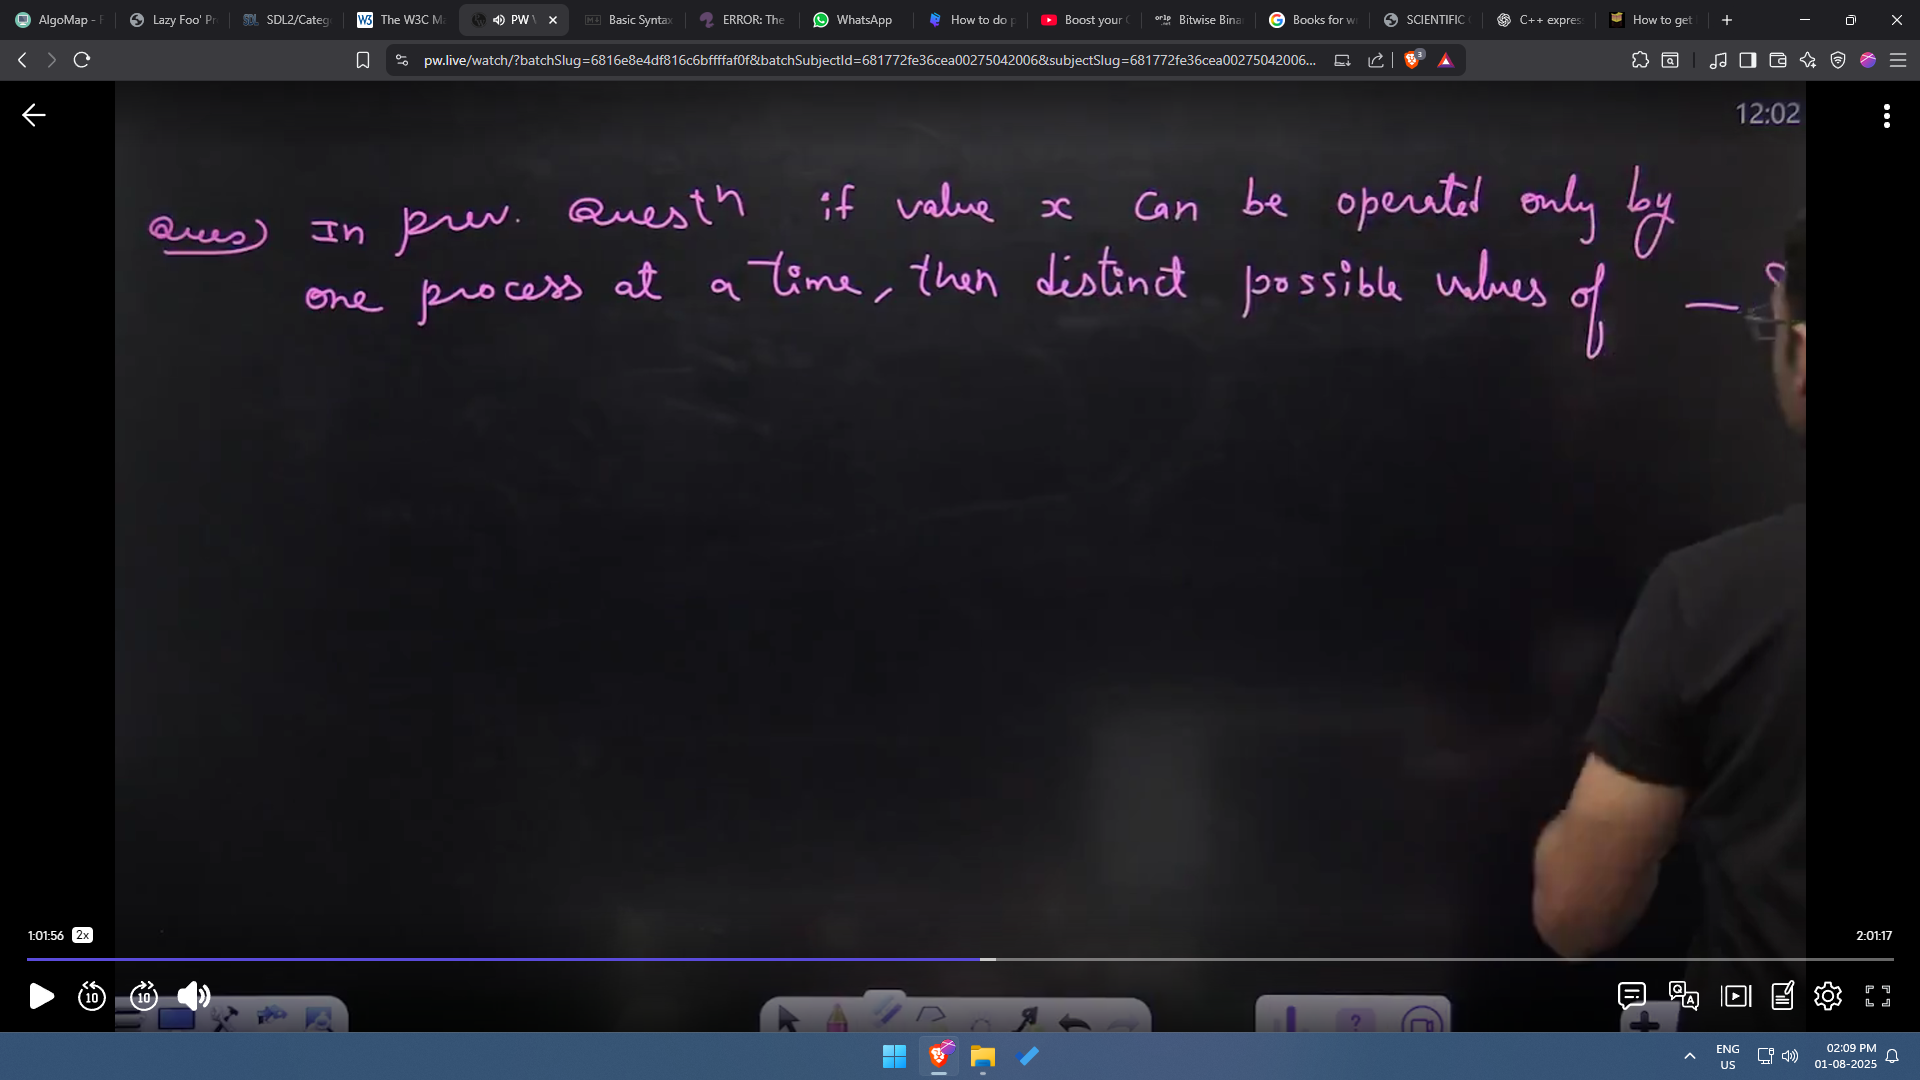 AlgoMap - F
Lazy Foo' Pr
SDL2/Catego
The W3C Ma
PW
Basic Syntax
ERROR: The
WhatsApp
How to do p
Boost your C
Bitwise Binar
Books for wi
SCIENTIFIC
C++ express
How to get
pw.live/watch/?batchSlug=6816e8e4df816c6bffffaf0f&batchSubjectId=681772fe36cea00275042006&subjectSlug=681772fe36cea00275042006...
3
12:02
Ques) In prev. Questn if value x can be operated only by
one process at a time, then distinct possible values of —
1:01:56 2x
2:01:17
10 10
Q A
ENG
US
02:09 PM
01-08-2025